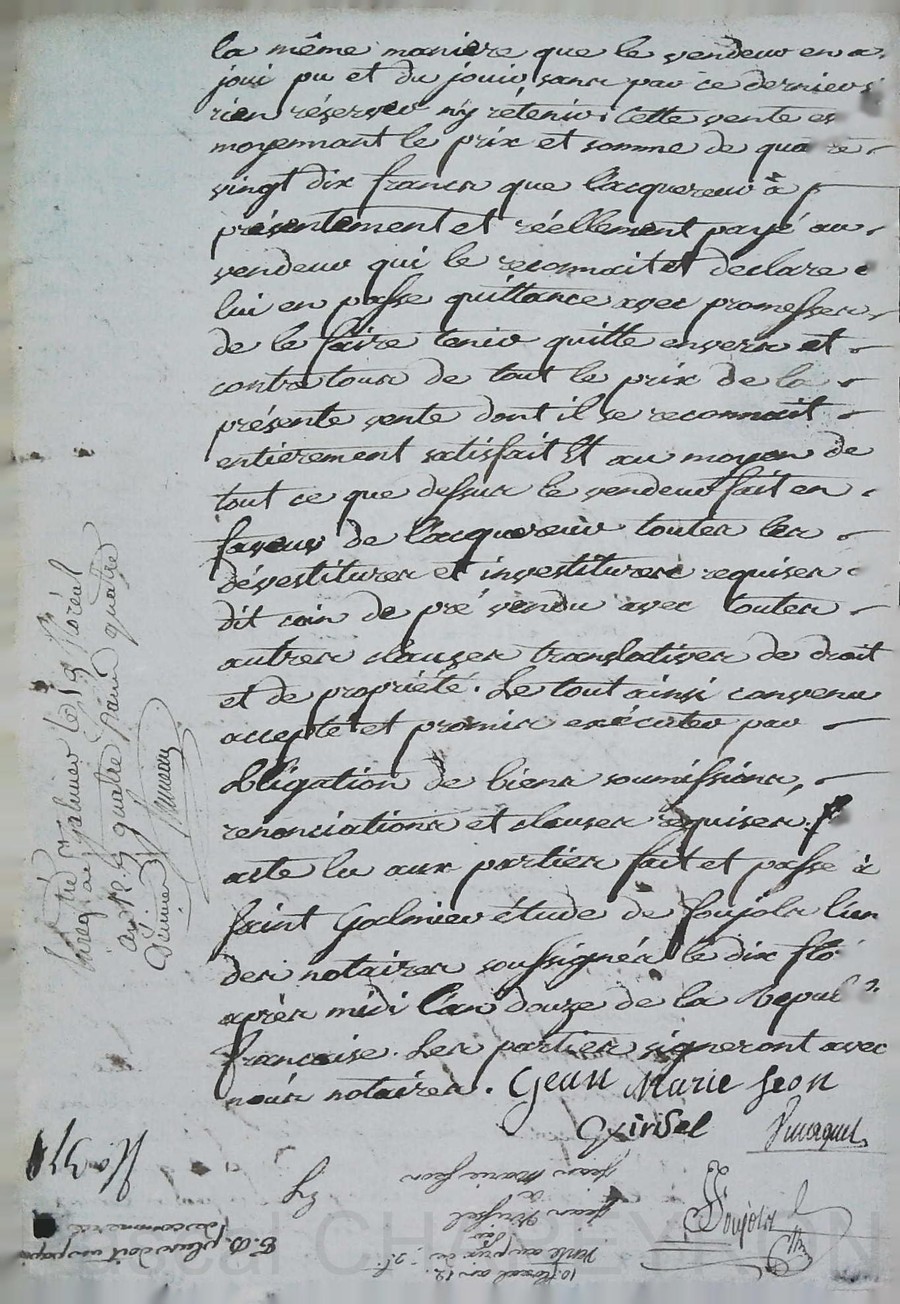 la même maniere que le vendeur en a
joui pu et du jouir sans par ce dernier
rien réserver n'y rétenir. Cette vente es
moyennant le prix et somme de qua re
vingt dix francs que l'acquereur à
présentement et réellement payé au
vendeur qui le reconnait et declare
lui en passe quittance avec promesses
de le faire tenir quitte envers et
contre tous de tout le prix de la
présente vente dont il se reconnait
entierement satisfait Et au moyen de
tout ce que dessus le vendeur fait en
faveur de l'acquereur toutes les
dévestitures et investitures requises
dit coin de pré vendu avec toutes
autres clauses translatives de droit
et de propriété. Le tout ainsi convenu
accepté et promis exécuter par
obligation de biens soumissions,
renonciations et clauses requises.
acte lu aux parties fait et passé à
saint Galmier étude de Poujols l'un
des notaires soussignés le dix flo
après midi l'an douze de la Repub
francaise. Les parties signeront avec
nous notaires. Jean Marie Jeon
Grissel
Poujols
Enregistré à St Galmier le 19 floréal
an 12. quatre francs quatre
Décimes
10 floreal an 12.
Vente au prix de
par
Jean
à
Jean Marie Jeon
Pascal CHAREYRON